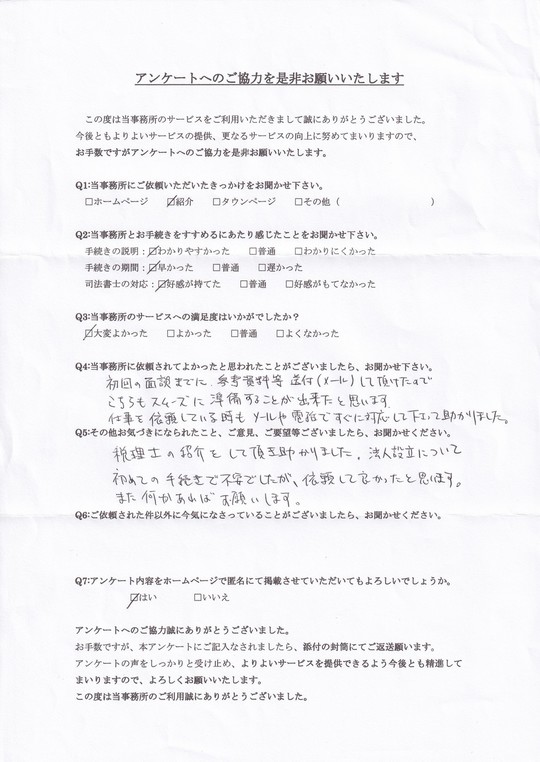 アンケートへのご協力を是非お願いいたします
この度は当事務所のサービスをご利用いただきまして誠にありがとうございました。
今後ともよりよいサービスの提供、更なるサービスの向上に努めてまいりますので、
お手数ですがアンケートへのご協力を是非お願いいたします。
Q1:当事務所にご依頼いただいたきっかけをお聞かせ下さい。
□ホームページ ☑紹介 □タウンページ □その他（ ）
Q2:当事務所とお手続きをすすめるにあたり感じたことをお聞かせ下さい。
手続きの説明：☑わかりやすかった □普通 □わかりにくかった
手続きの期間：☑早かった □普通 □遅かった
司法書士の対応：☑好感が持てた □普通 □好感がもてなかった
Q3:当事務所のサービスへの満足度はいかがでしたか？
☑大変よかった □よかった □普通 □よくなかった
Q4:当事務所に依頼されてよかったと思われたことがございましたら、お聞かせ下さい。
初回の面談までに、参考資料等 送付（メール）して頂けたので
こちらもスムーズに準備することが出来たと思います。
仕事を依頼している時も メールや電話ですぐに対応して下さって助かりました。
Q5:その他お気づきになられたこと、ご意見、ご要望等ございましたら、お聞かせください。
税理士の紹介をして頂き助かりました。法人設立について
初めての手続きで不安でしたが、依頼して良かったと思います。
また何かあればお願いします。
Q6:ご依頼された件以外に今気になさっていることがございましたら、お聞かせください。
Q7:アンケート内容をホームページで匿名にて掲載させていただいてもよろしいでしょうか。
☑はい □いいえ
アンケートへのご協力誠にありがとうございました。
お手数ですが、本アンケートにご記入なされましたら、添付の封筒にてご返送願います。
アンケートの声をしっかりと受け止め、よりよいサービスを提供できるよう今後とも精進して
まいりますので、よろしくお願いいたします。
この度は当事務所のご利用誠にありがとうございました。